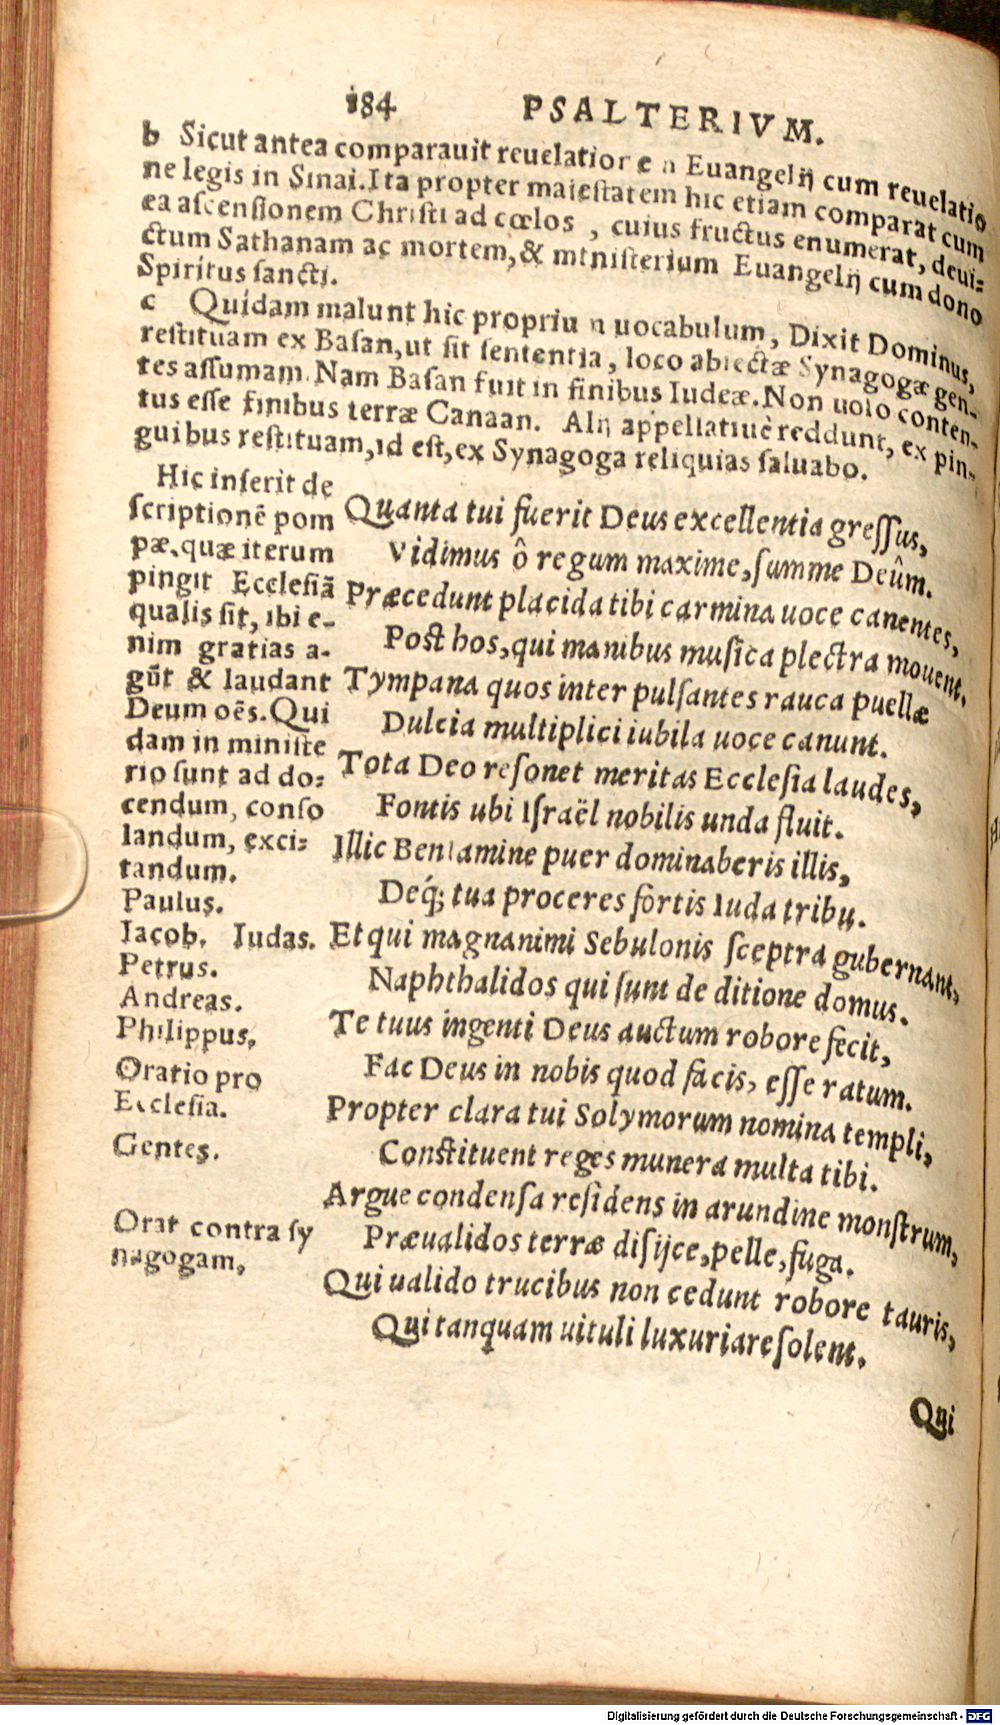 184 PSALTERIVM.
b Sicut antea comparauit reuelatione n Euangelij cum reuelatio
ne legis in Sinai. Ita propter maiestatem hic etiam comparat cum
ea ascensionem Christi ad cœlos , cuius fructus enumerat, deui-
ctum Sathanam ac mortem, & ministerium Euangelij cum dono
Spiritus sancti.
c Quidam malunt hic propriu n uocabulum, Dixit Dominus,
restituam ex Basan, ut sit sententia, loco abiectæ Synagogæ gen-
tes assumam. Nam Basan fuit in finibus Iudeæ. Non uolo conten-
tus esse finibus terræ Canaan. Alij appellatiuè reddunt, ex pin-
guibus restituam, id est, ex Synagoga reliquias saluabo.
Hic inserit de
scriptionẽ pom
pæ, quæ iterum
pingit Ecclesiã
qualis sit, ibi e-
nim gratias a-
gũt & laudant
Deum oẽs. Qui
dam in ministe
rio sunt ad do-
cendum, conso
landum, exci-
tandum.
Paulus.
Jacob. Iudas.
Petrus.
Andreas.
Philippus.
Oratio pro
Ecclesia.
Gentes.
Orat contra sy
nagogam,
Quanta tui fuerit Deus excellentia gressus,
Vidimus ô regum maxime, summe Deûm.
Præcedunt placida tibi carmina uoce canentes,
Post hos, qui manibus musica plectra mouent.
Tympana quos inter pulsantes rauca puellæ
Dulcia multiplici iubila uoce canunt.
Tota Deo resonet meritas Ecclesia laudes,
Fontis ubi Israël nobilis unda fluit.
Illic Beniamine puer dominaberis illis,
Deq́; tua proceres fortis Iuda tribu.
Et qui magnanimi Sebulonis sceptra gubernant,
Naphthalidos qui sunt de ditione domus.
Te tuus ingenti Deus auctum robore fecit,
Fac Deus in nobis quod facis, esse ratum.
Propter clara tui Solymorum nomina templi,
Constituent reges munera multa tibi.
Argue condensa residens in arundine monstrum,
Præualidos terræ disijce, pelle, fuga.
Qui ualido trucibus non cedunt robore tauris,
Qui tanquam uituli luxuriare solent.
Qui
Digitalisierung gefördert durch die Deutsche Forschungsgemeinschaft - DFG